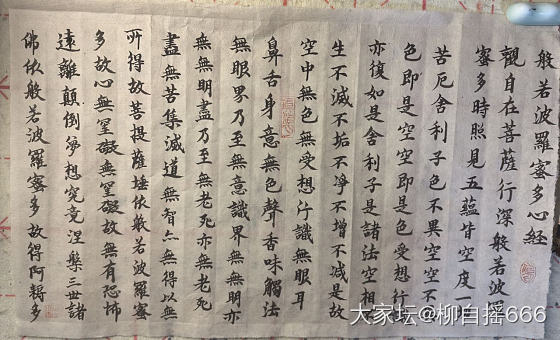 般若波羅蜜多心經
觀自在菩薩行深般若波羅
蜜多時照見五蘊皆空度一
苦厄舍利子色不異空空不
色即是空空即是色受想行
亦復如是舍利子是諸法空相
生不滅不垢不淨不增不減是故
空中無色無受想行識無眼耳
鼻舌身意無色聲香味觸法
無眼界乃至無意識界無無明亦
無無明盡乃至無老死亦無老死
盡無苦集滅道無智亦無得以無
所得故菩提薩埵依般若波羅蜜
多故心無罣礙無罣礙故無有恐怖
遠離顛倒夢想究竟涅槃三世諸
佛依般若波羅蜜多故得阿耨多
大家坛@柳自摇666